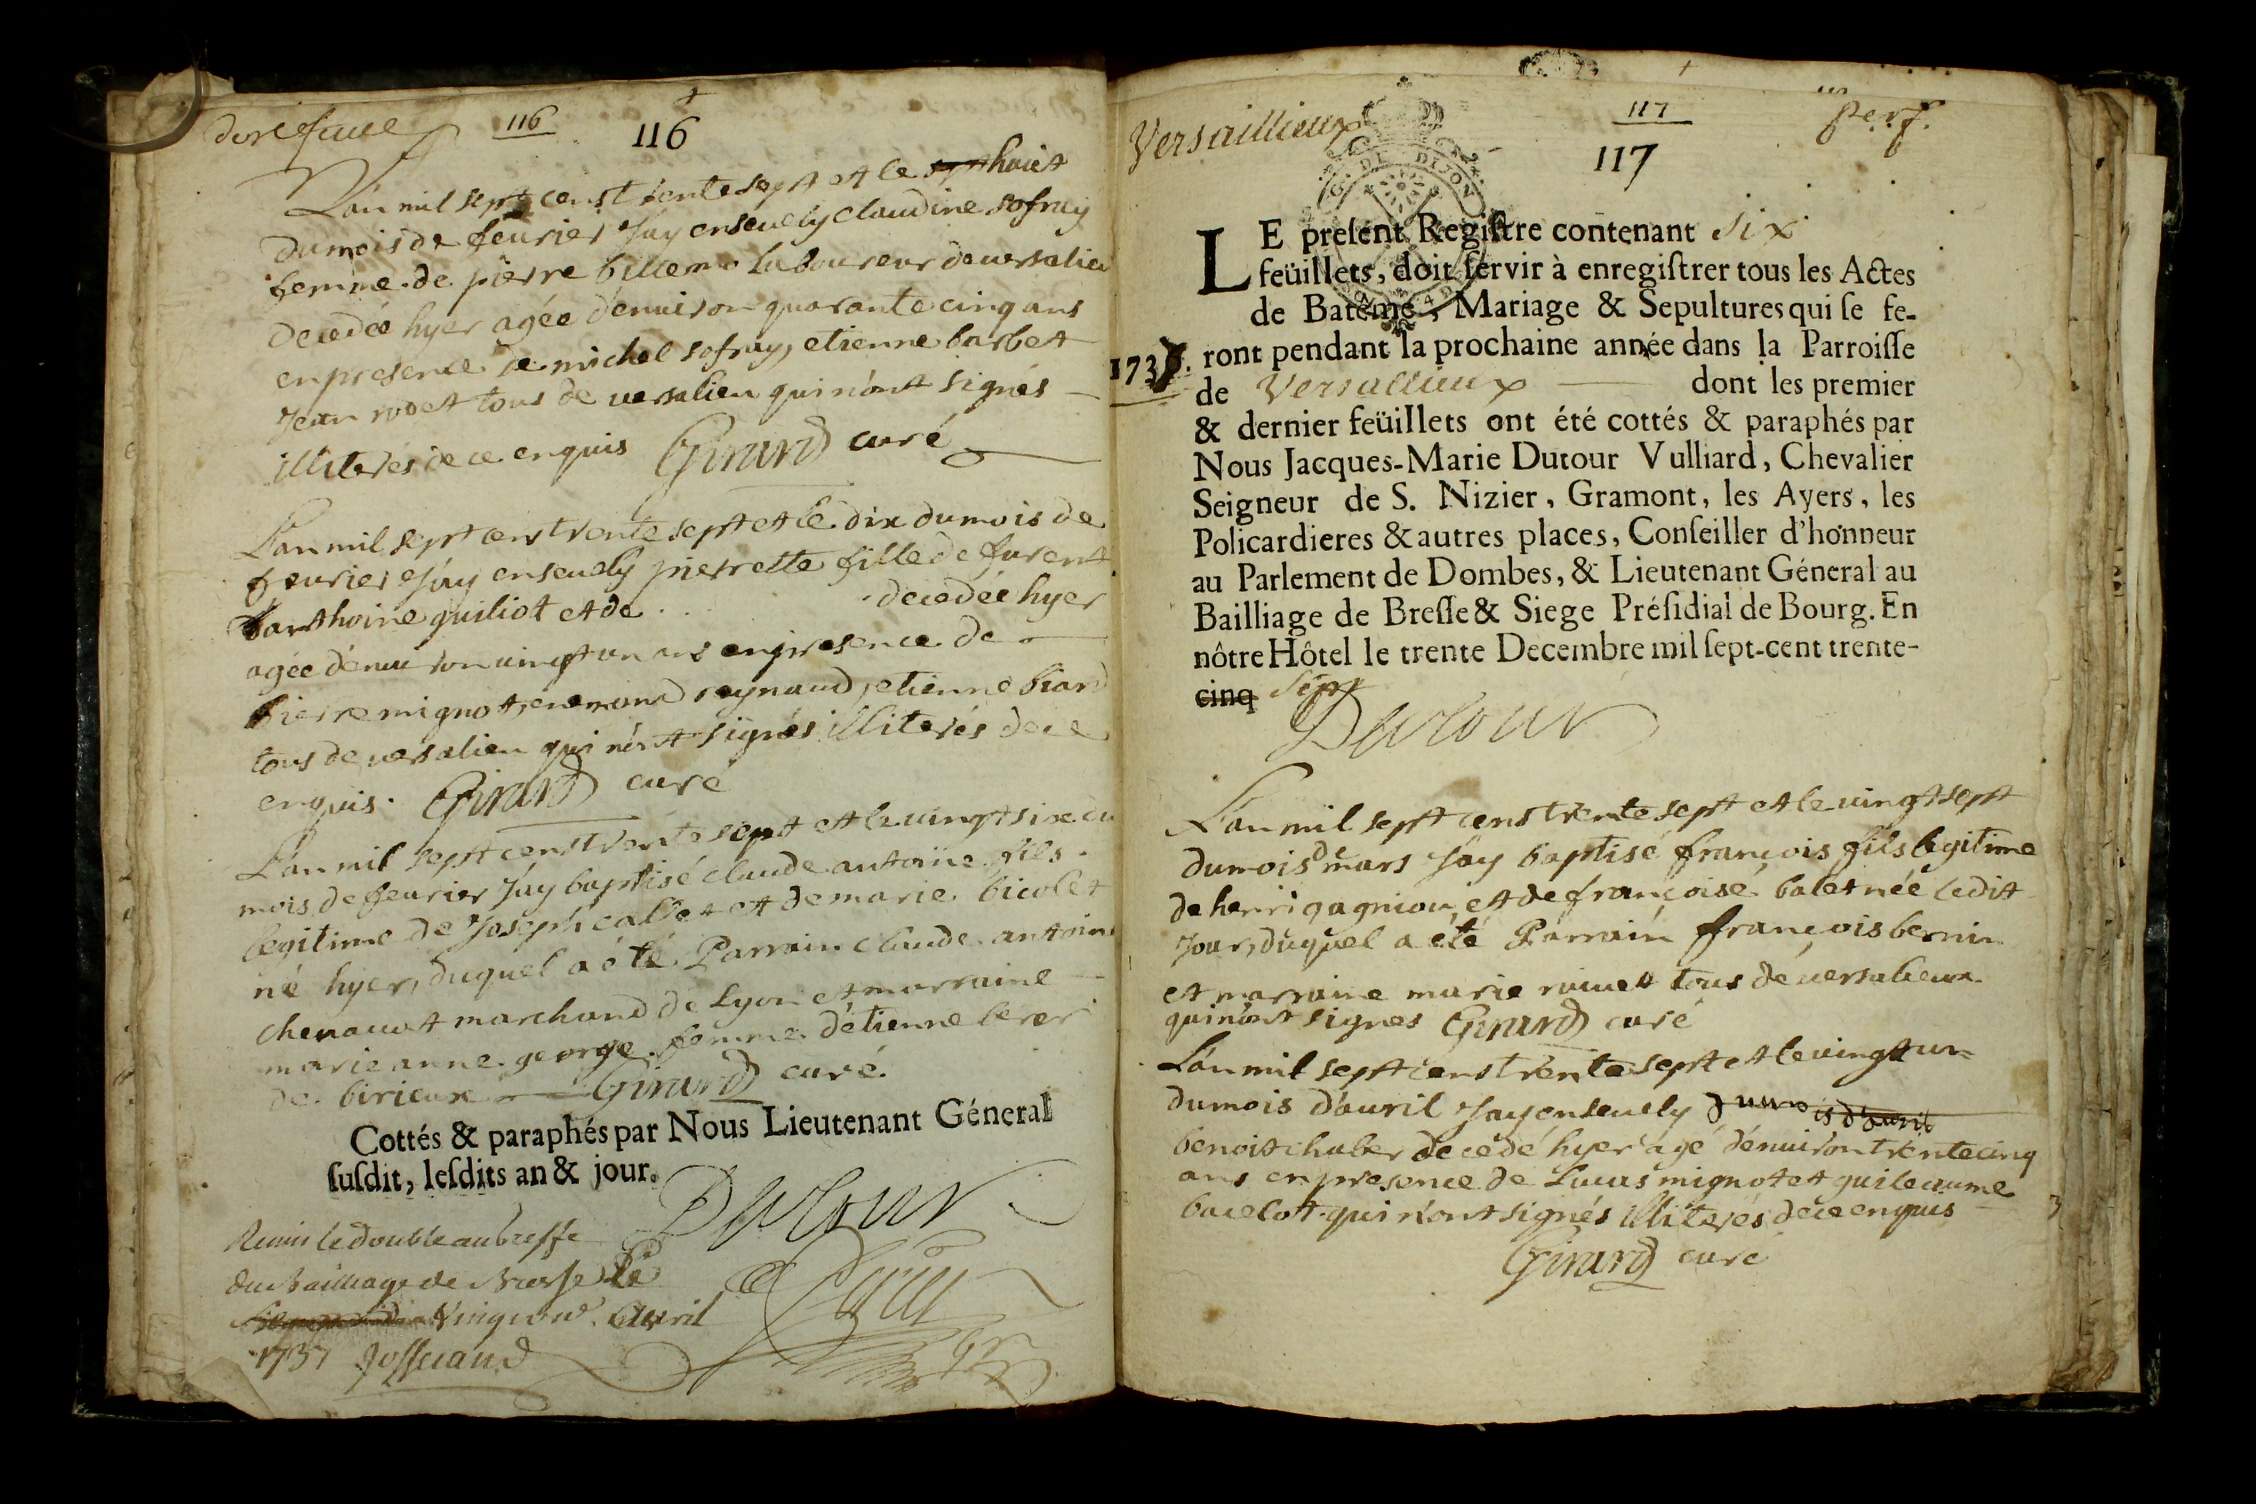 116
116
L'an mil sept cens trente sept et le huict
du mois de feurier J'ay enseuely Claudine sofray
femme de pierre billemo laboureur de versalieu
decedée hyer agée d'enuiron quarante cinq ans
en presence de michel sofray, etienne barbet
Jean rodet tous de versalieu qui n'ont signés
illiterés de ce enquis Girard curé
L'an mil sept cens trente sept et le dix du mois de
feurier J'ay enseuely pierrette fille de
barthoine guiliot et de decedée hyer
agée d'enuiron vingt un ans en presence de
pierre mignot, enemond raynaud, etienne biard
tous de versalieu qui n'ont signés illiterés de ce
enquis. Girard curé
L'an mil sept cens trente sept et le vingt six du
mois de feurier J'ay baptisé claude antoine fils
legitime de Joseph callet et de marie bicolet
né hyer, duquel a été Parrain claude antoine
chenauat marchand de Lyon et marraine
marie anne george femme d'etienne
de birieux Girard curé.
Cottés & paraphés par Nous Lieutenant Géneral
ſuſdit, leſdits an & jour.
Dutour
Remis le double au greffe
du Bailliage de Bresse le
avril
1737
Versaillieux
117
117
LE preſent Regiſtre contenant Six
feüillets, doit ſervir à enregiſtrer tous les Actes
de Batême, Mariage & Sepultures qui ſe fe-
173
ront pendant la prochaine année dans la Parroiſſe
de Versallieux dont les premier
& dernier feüillets ont été cottés & paraphés par
Nous Jacques-Marie Dutour Vulliard, Chevalier
Seigneur de S. Nizier, Gramont, les Ayers, les
Policardieres & autres places, Conſeiller d'honneur
au Parlement de Dombes, & Lieutenant Géneral au
Bailliage de Breſſe & Siege Préſidial de Bourg. En
nôtre Hôtel le trente Decembre mil ſept-cent trente-
cinq Sept
Dutour
L'an mil sept cens trente sept et le vingt sept
du mois de mars J'ay baptisé françois fils legitime
de henri gagniou, et de françoise balet née ledit
Jour, duquel a eté Parrain françois bernin
et marraine marie riuuet tous de versalieux
qui n'ont signes Girard curé
L'an mil sept cens trente sept et le vingt un
du mois d'auril J'ay enseuely du mois d'auril
benoit chaber decedé hyer agé d'enuiron trente cinq
ans en presence de Lucas mignot et guileaume
bacelot qui n'ont signés illiterés de ce enquis
Girard curé